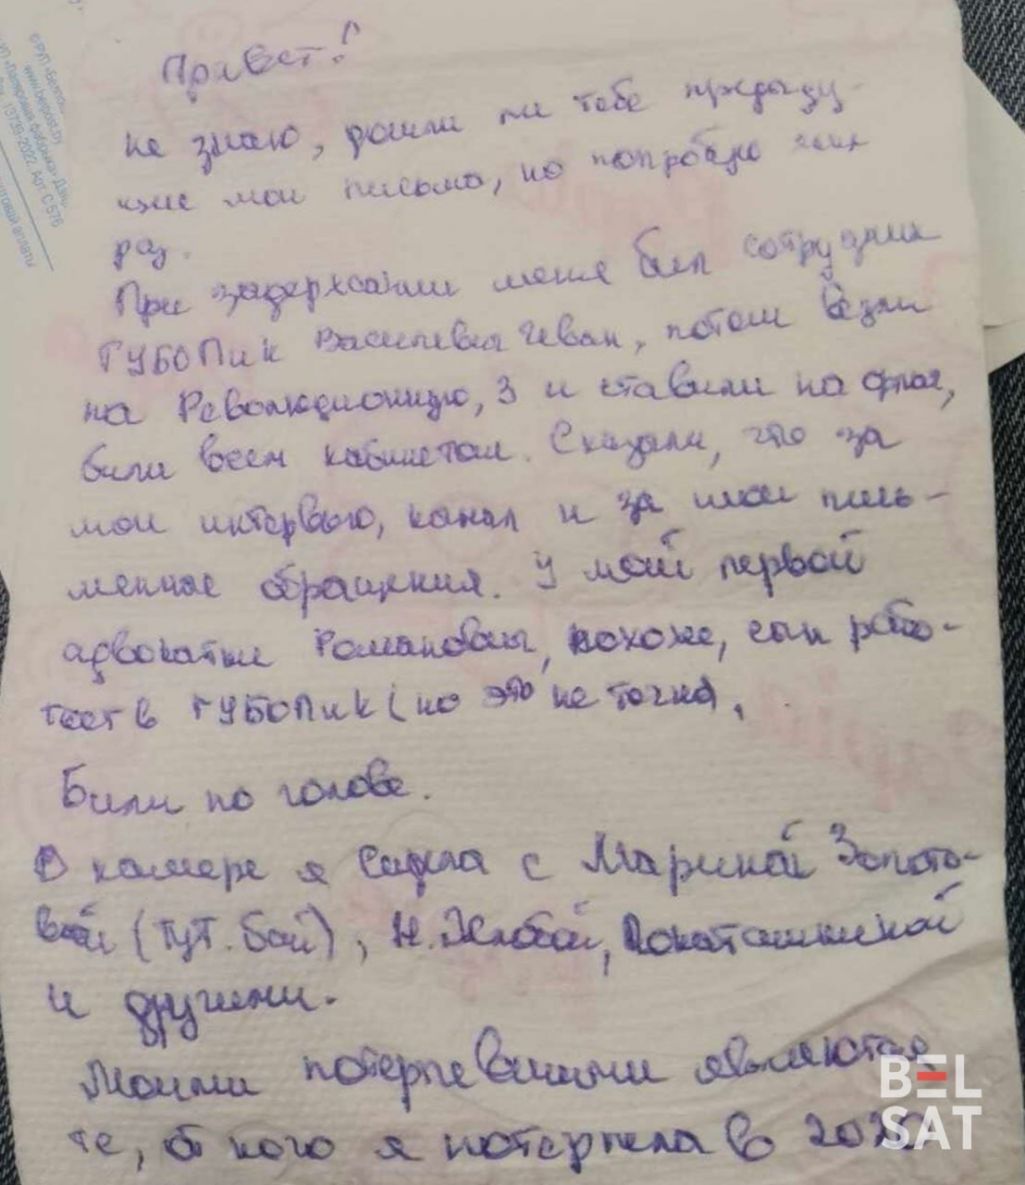 Привет!
не знаю, дошли ли тебе предыду-
щие мои письма, но попробую
раз.
При задержании меня бил сотрудник
ГУБОПиК Василевич Иван, потом везли
на Революционную, 3 и ставили на флаг,
били всем кабинетом. Сказали, что за
мои интервью, канал и за мои пись-
менные обращения. У моей первой
адвокатки Романовой, похоже, сын рабо-
тает в ГУБОПиК (но это не точно).
Били по голове.
В камере я сидела с Мариной Золото-
вой (тут.бай), Н. Хлобой,
и другими.
Моими потерпевшими являются
те, от кого я потерпела в 2020
BELSAT
©РУП «Белпочта»
www.belpost.by
13739-2022. Арт. С 576